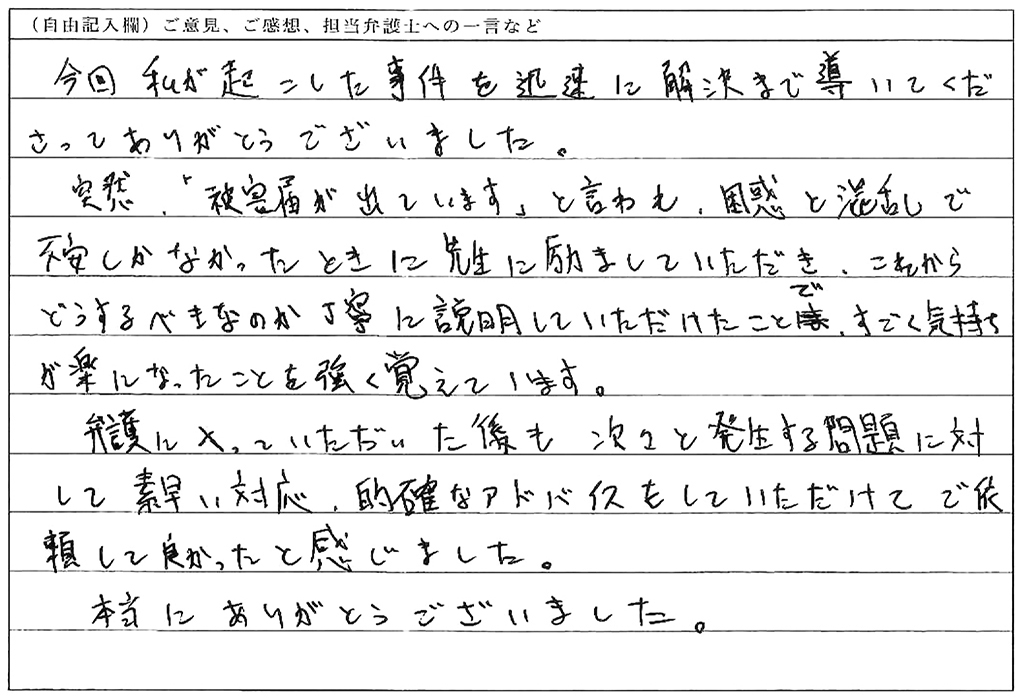 (自由記入欄)ご意見、ご感想、担当弁護士への一言など
今回 私が起こした事件を迅速に解決まで導いてくだ
さってありがとうございました。
突然、「被害届が出ています」と言われ、困惑と混乱しで
不安しかなかったときに先生に励ましていただき、これから
どうするべきなのか丁寧に説明していただけたことで、すごく気持ち
が楽になったことを強く覚えています。
弁護に入っていただいた後も次々と発生する問題に対
して素早い対応、的確なアドバイスをしていただけてご依
頼して良かったと感じました。
本当にありがとうございました。